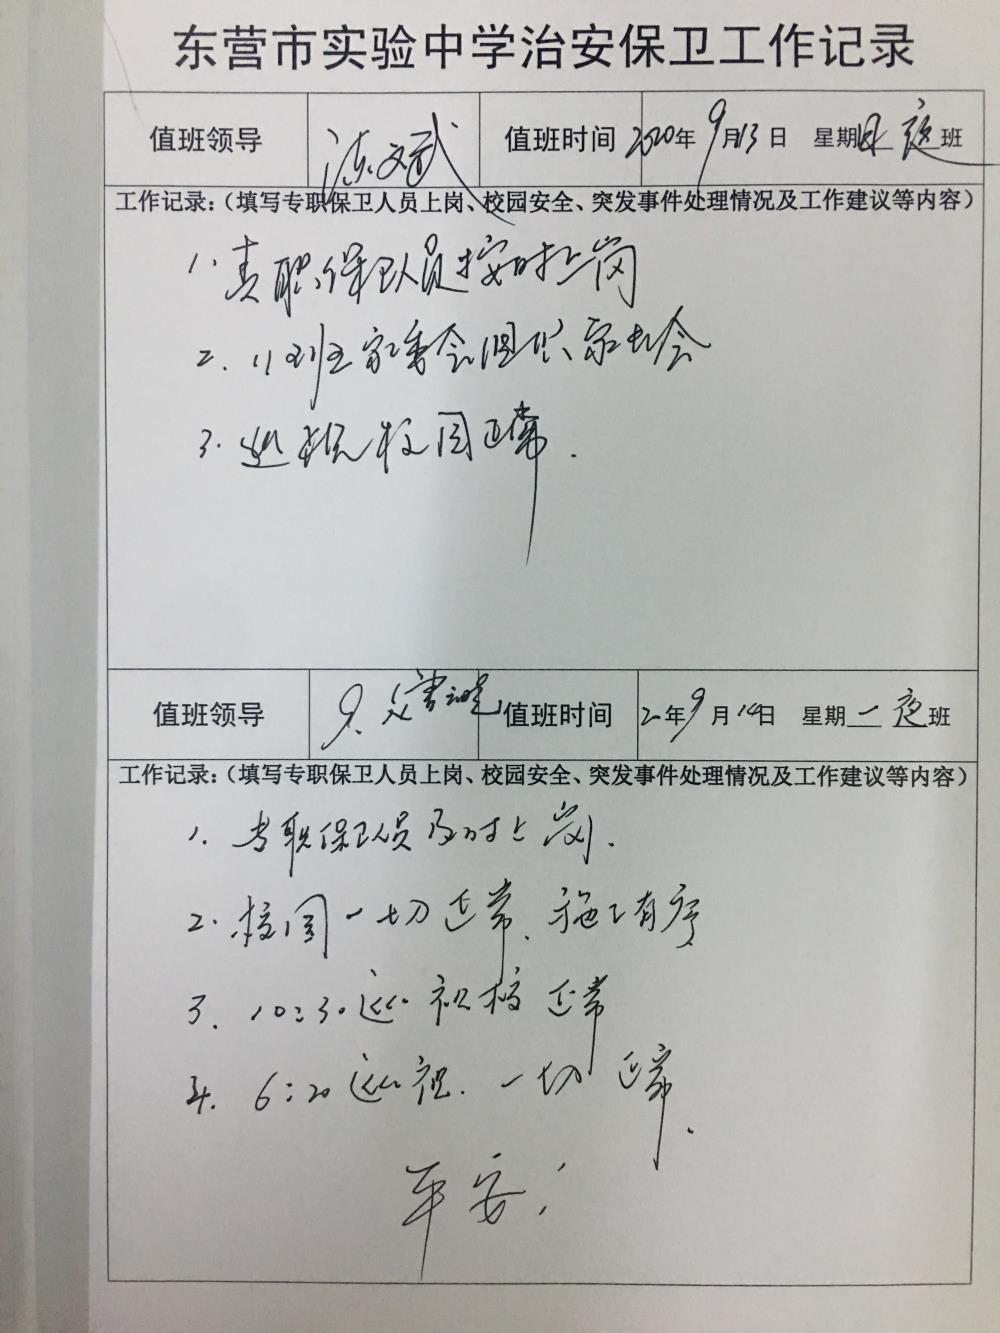 东营市实验中学治安保卫工作记录
值班领导 值班时间 2020年9月13日 星期日 夜班
工作记录:(填写专职保卫人员上岗、校园安全、突发事件处理情况及工作建议等内容)
1. 专职保卫人员按时上岗
2. 11班家委会组织家长会
3. 巡视校园正常.
值班领导 值班时间 年9月14日 星期一 夜班
工作记录:(填写专职保卫人员上岗、校园安全、突发事件处理情况及工作建议等内容)
1. 专职保卫人员及时上岗.
2. 校园一切正常. 施工有序
3. 10:30巡视校正常
4. 6:20巡视. 一切正常.
平安!